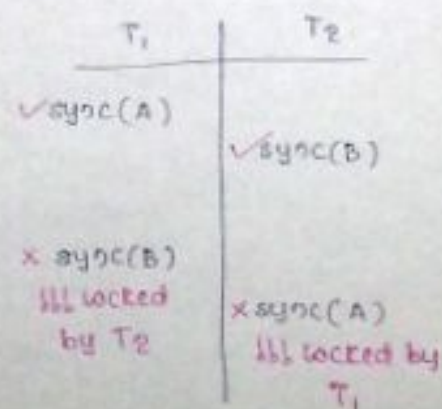 T1 T2
✓sync(A)
✓sync(B)
x sync(B)
↓↓↓ locked
by T2
x sync(A)
↓↓↓ locked by
T1